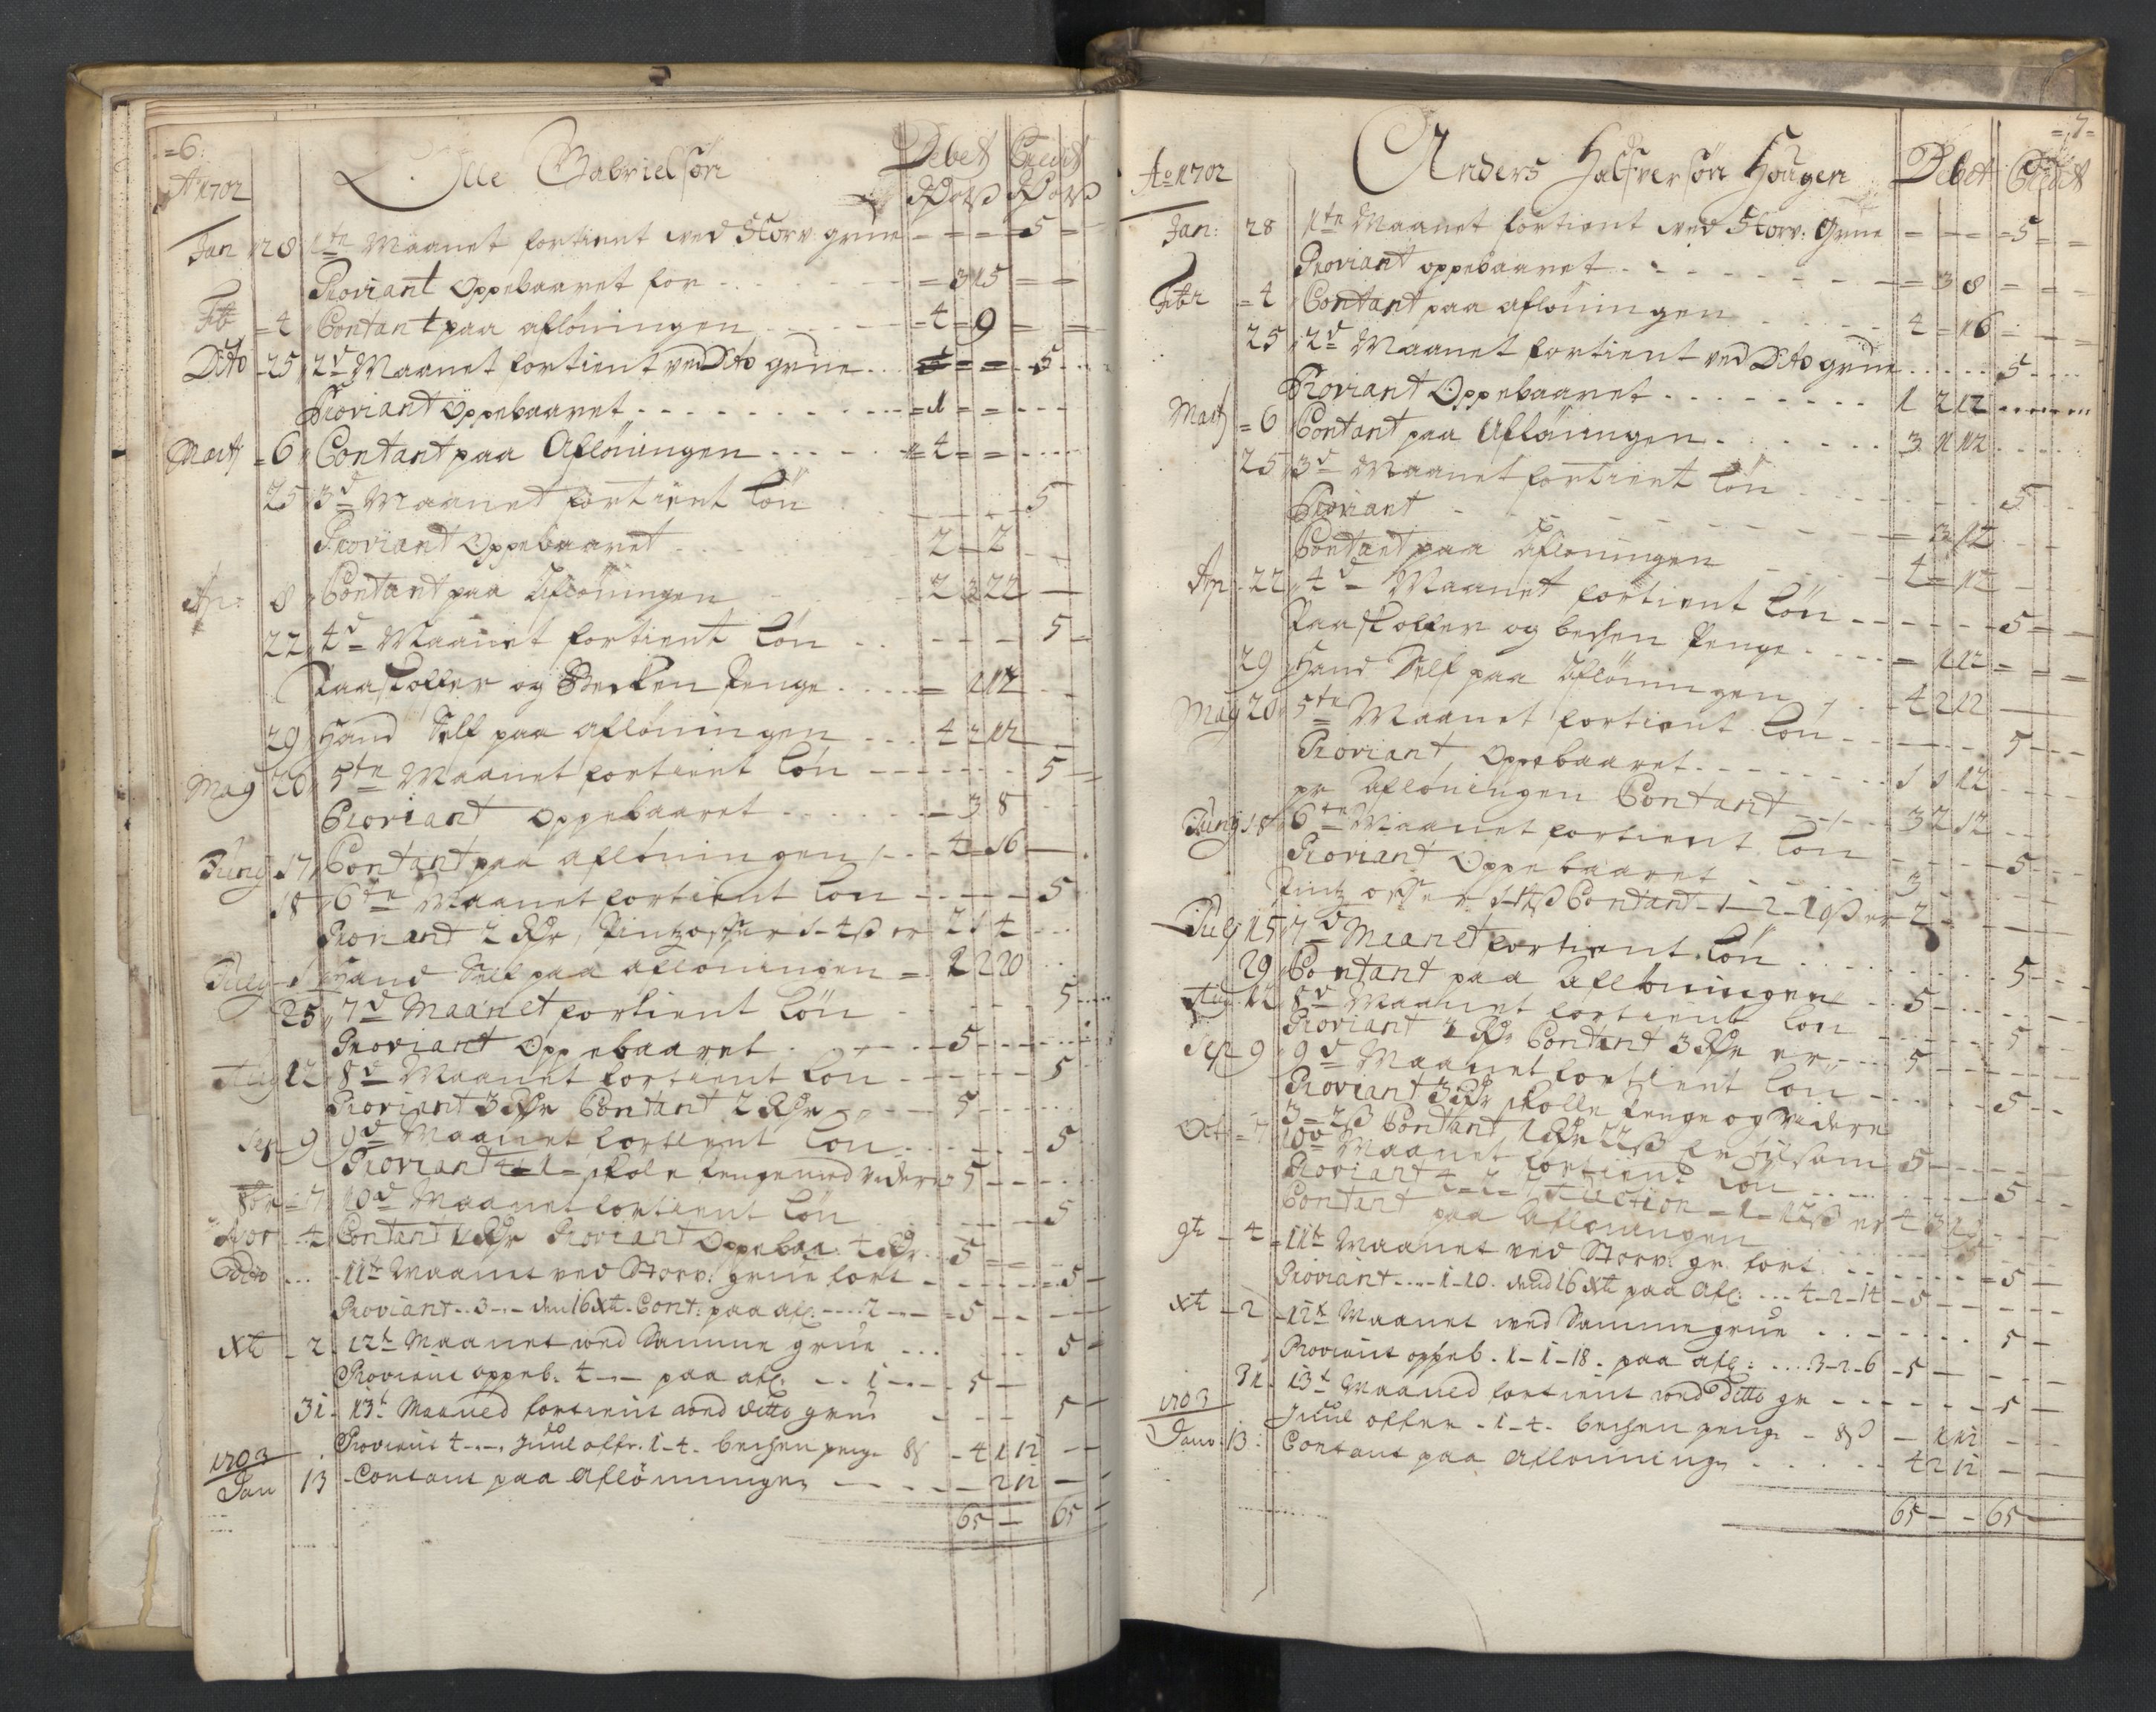 =6=
Ao 1702 Olle Gabrielsøn Debet Credit
Rdr o ß Rdr o ß
Jan 28 1te Maanet fortient ved Storv: grue - = = = 5 = =
Proviant Oppebaaret for - - = 3 15 = =
Feb = 4 Contant paa afløningen - - = 4 = 9 = =
Dito - 25 2d Maanet fortient ved Dito grue . . = = - 5 . .
Proviant Oppebaaret - - - = 1 = = - - -
Marty = 6 Contant paa Afløningen - - - 4 = = - - -
25 3d Maanet fortient Løn - - - 5
Proviant Oppebaaret - - 2 - 2 - -
Ap: 8 Contant paa Afløningen 2 3 22 —
22 4d Maanet fortient Løn - - - - 5 -
Paaskoffer og Becken Penge - - - = 1 12 - -
29 Hand Self paa afløningen - - 4 2 12 -
May 20 5te Maanet fortient Løn - - - - 5 - -
Proviant Oppebaaret - - - - 3 8 - -
Juny 17 Contant paa afløningen - - - 4 - 16 —
18 6te Maanet fortient Løn - - - - 5
Proviant 2 Rdr, Pintzoffer 1-4ß er 2 1 4 - - -
July 1 Hand Self paa afløningen = 2 2 20 - -
25 7d Maanet fortient Løn - - - - 5 - -
Proviant Oppebaaret - - - 5 - - -
Aug 12 8d Maanet fortient Løn - - - - 5
Proviant 3 Rdr Contant 2 Rdr - - - 5 - - -
Sep 9 9d Maanet fortient Løn - - - - 5
Proviant 4 - 1 - skole Penge med videre 5 - - -
8br = 7 10d Maanet fortient Løn - - - 5
Nov - 4 Contant 1 Rdr Proviant Oppebaa: 4 Rdr. 5 = =
Dito - - - 11te Maanet ved Storv: grue fort - - - - 5 -
Proviant - 3 - - den 16 Xbr. Cont: paa afl: - - 2 - - = 5 - - -
Xbr - 2 12te Maanet ved Samme grue - - - 5 -
Proviant oppeb. 4 - - paa afl: - - 1 - - - 5 -
31 - 13t Maaned fortient ved ditto grue - - - 5 -
Proviant 4 - - - Juul offr. 1 - 4 - bechen peng - 8ß - 4 1 12 - -
1703
Jan 13 - Contant paa Afløninngen - - - - 2 12 —
65 - 65 -
=7=
Ao 1702 Anders Halfversøn Hougen Debet Credit
Jan: 28 1te Maanet fortient ved Storv: Grue = - = = 5 = =
Proviant oppebaaret - - - - = 3 8 = - -
Febr = 4 Contant paa afløningen - - - 4 - 16 = - -
25 2d Maanet fortient ved Dito grue - - - 5 - - -
Proviant Oppebaaret - - - - 1 2 12 - - -
Marty = 6 Contant paa Afløningen - - - 3 1 12 - - -
25 3d Maanet fortient Løn - - - 5 - -
Proviant - - - - = 3 12 - -
Contant paa Afløningen - - - 4 = 12 - -
Ap - 22 4d Maanet fortient Løn - - - - 5 = -
Paaskoffer og bechen Penge - - - = 1 12 = =
29 Hand Self paa Afløningen - - 4 2 12 —
May 20 5te Maanet fortient Løn - - - - 5 - - -
Proviant Oppebaaret - - - - 1 1 12 - - -
pr Afløningen Contant - - - 3 2 12 - - -
Juny 18 6te Maanet fortient Løn - - - - 5 - -
Proviant Oppebaaret - - - - 3 - - -
Pintz offer 1-4ß Contant - 1 - 2 - 19ß er 2 - - —
July 15 7d Maanet fortient Løn - - - - 5 - -
29 Contant paa Afløningen - - 5 - - -
Aug 12 8d Maanet fortient Løn - - - - 5 - -
Proviant 2 Rdr Contant 3 Rdr er - - 5 - - -
Sep 9 9d Maanet fortient Løn - - - - 5 - -
Proviant 3 Rdr skolle Penge og videre
3 = 2ß Contant 1 Rdr 22ß er Tilsam 5 - - - -
Oct = 7 10d Maanet fortient Løn - - - - 5 -
Proviant 4 - 2 - - 1 - 12ß er 4 3 12
Contant paa Afløningen - - -
9br - 4 - 11te Maanet ved Storv: gr: fort: - - - - = 5 -
Proviant - - - 1 - 10. dend 16 Xbr paa Afl: - - - 4 - 2 - 14 - 5 - - -
Xbr - 2 - 12te Maanet ved Samme grue - - - - 5 -
Proviant oppeb. 1 - 1 - 18 - paa afl: - - - 3 - 2 - 6 - 5 - - -
31 - 13t Maaned fortient ved Ditto gr - - - - 5 -
1703 Juul offer - 1 - 4 - bechen peng - 8ß - 1 12 - -
Janv: 13: Contant paa Afløninng - - - - 4 2 12 - -
65 - - 65 -